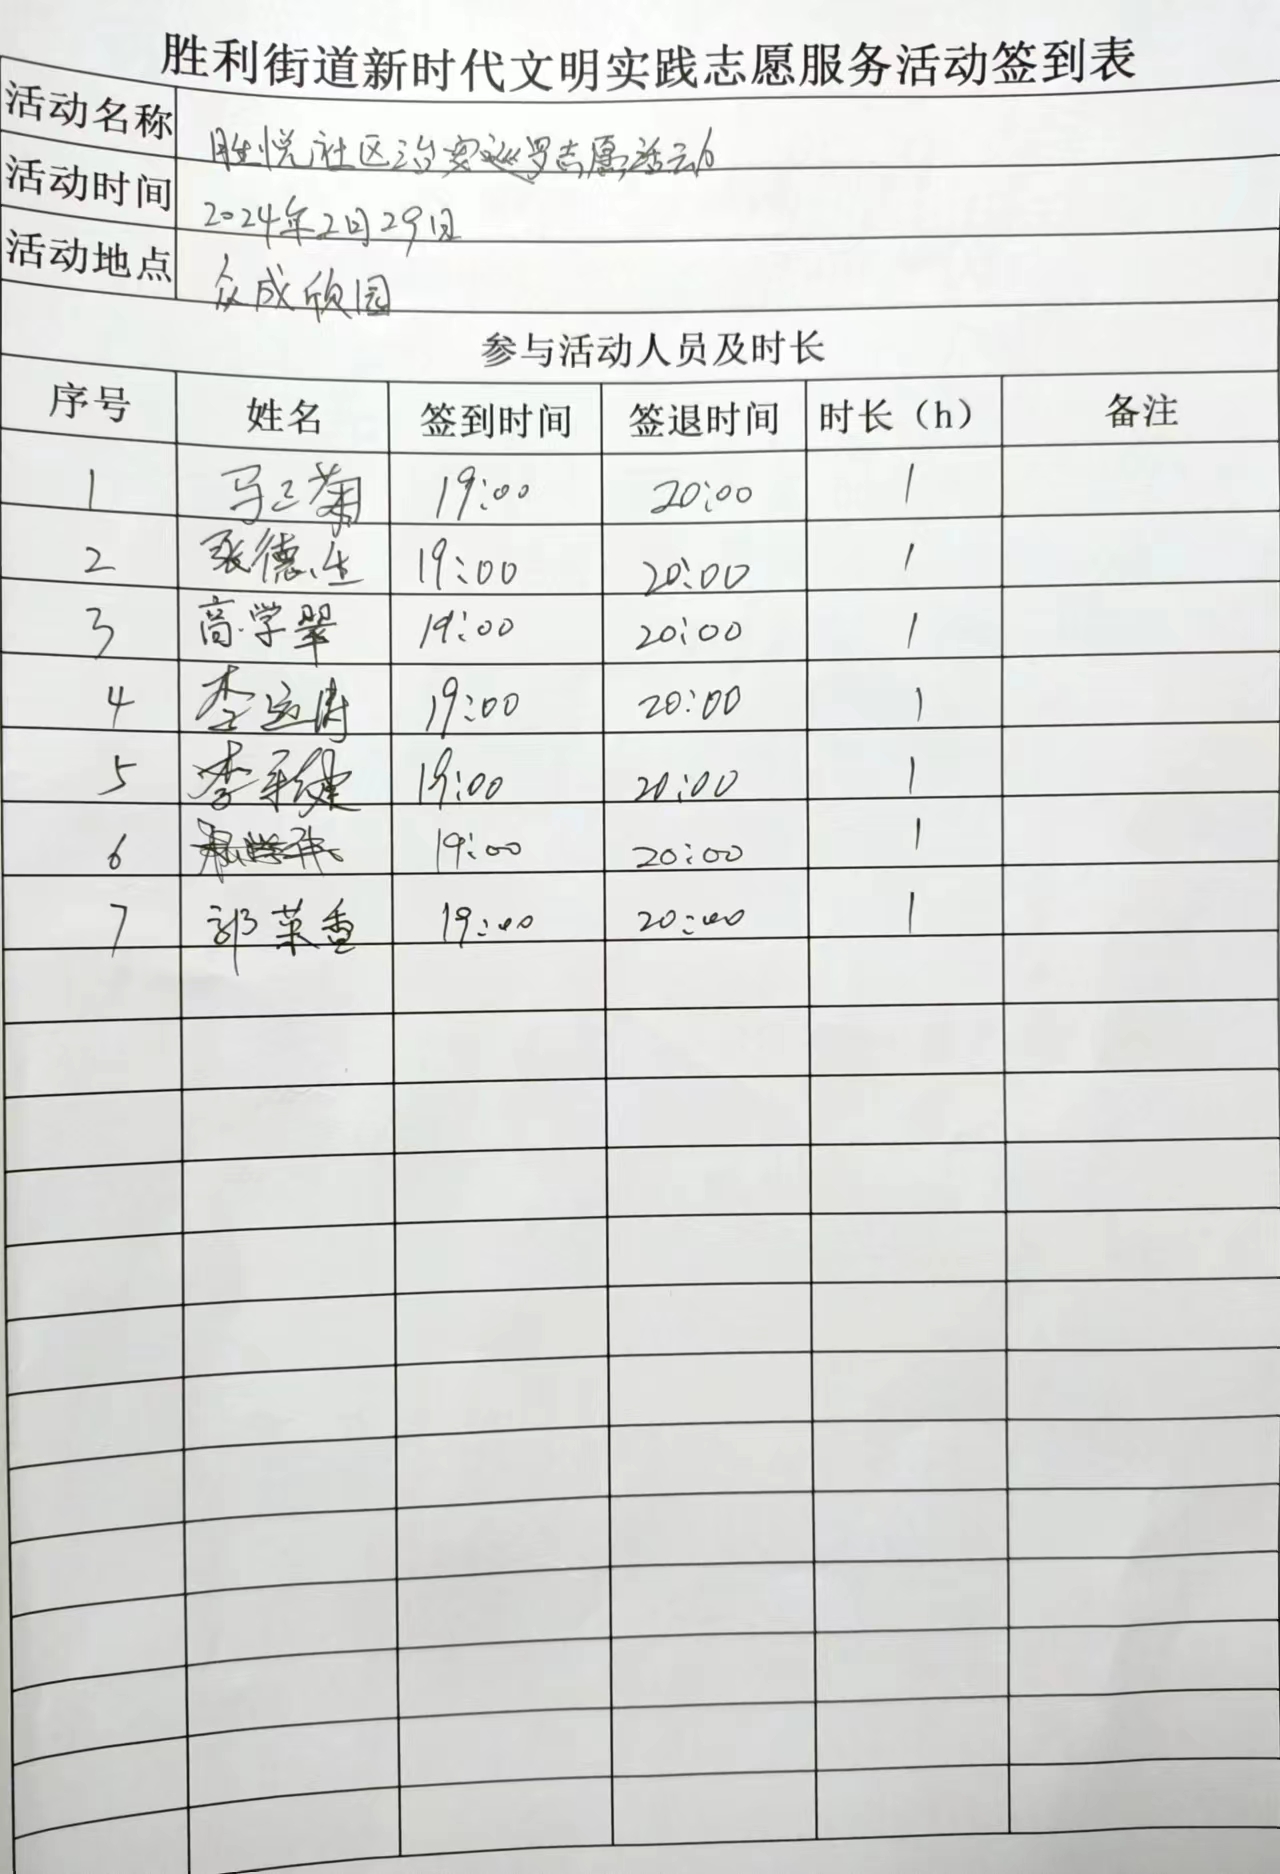 胜利街道新时代文明实践志愿服务活动签到表
活动名称 胜悦社区治安巡罗志愿活动
活动时间 2024年2月29日
活动地点 众成欣园
参与活动人员及时长
序号 姓名 签到时间 签退时间 时长（h） 备注
1 马三菊 19:00 20:00 1
2 张德生 19:00 20:00 1
3 高学翠 19:00 20:00 1
4 李 19:00 20:00 1
5 李 19:00 20:00 1
6 19:00 20:00 1
7 郭荣香 19:00 20:00 1